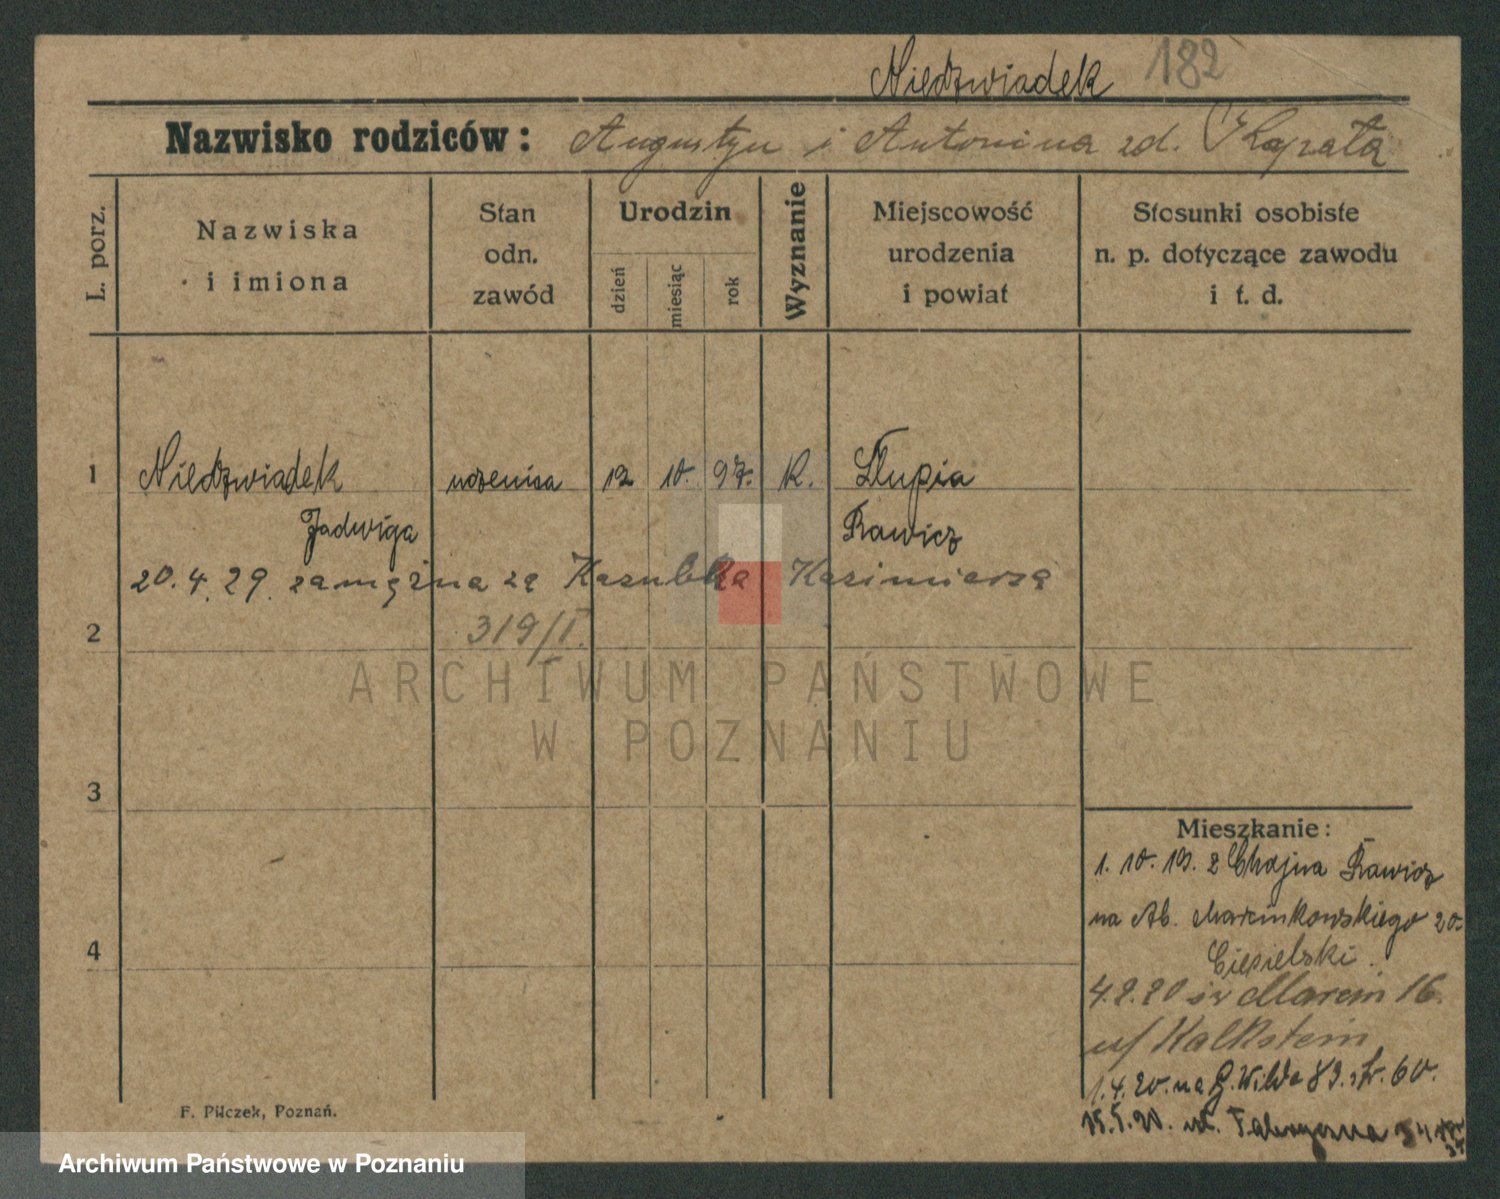 Niedzwiadek 182
Nazwisko rodziców: Augustyn i Antonina zd.
L. porz.
Nazwiska
i imiona
Stan
odn.
zawód
Urodzin
dzień
miesiąc
rok
Wyznanie
Miejscowość
urodzenia
i powiat
Stosunki osobiste
n. p. dotyczące zawodu
i t. d.
1 Niedzwiadek uczenica 12 10. 97. K. Słupia
Jadwiga Rawicz
20. 4. 29. zamężna za Kazimierza
2 319/I.
ARCHIWUM PAŃSTWOWE
W POZNANIU
3
4
Mieszkanie:
1. 10. 19. z Chojna Rawicz
na Marcinkowskiego 20.
Ciesielski.
4.2.20 św Marcin 16.
u/ Kalkstein
1.4.20. na G. Wilda 89. 60.
15.5.20. ul. Fabryczna
F. Pilczek, Poznań.
Archiwum Państwowe w Poznaniu